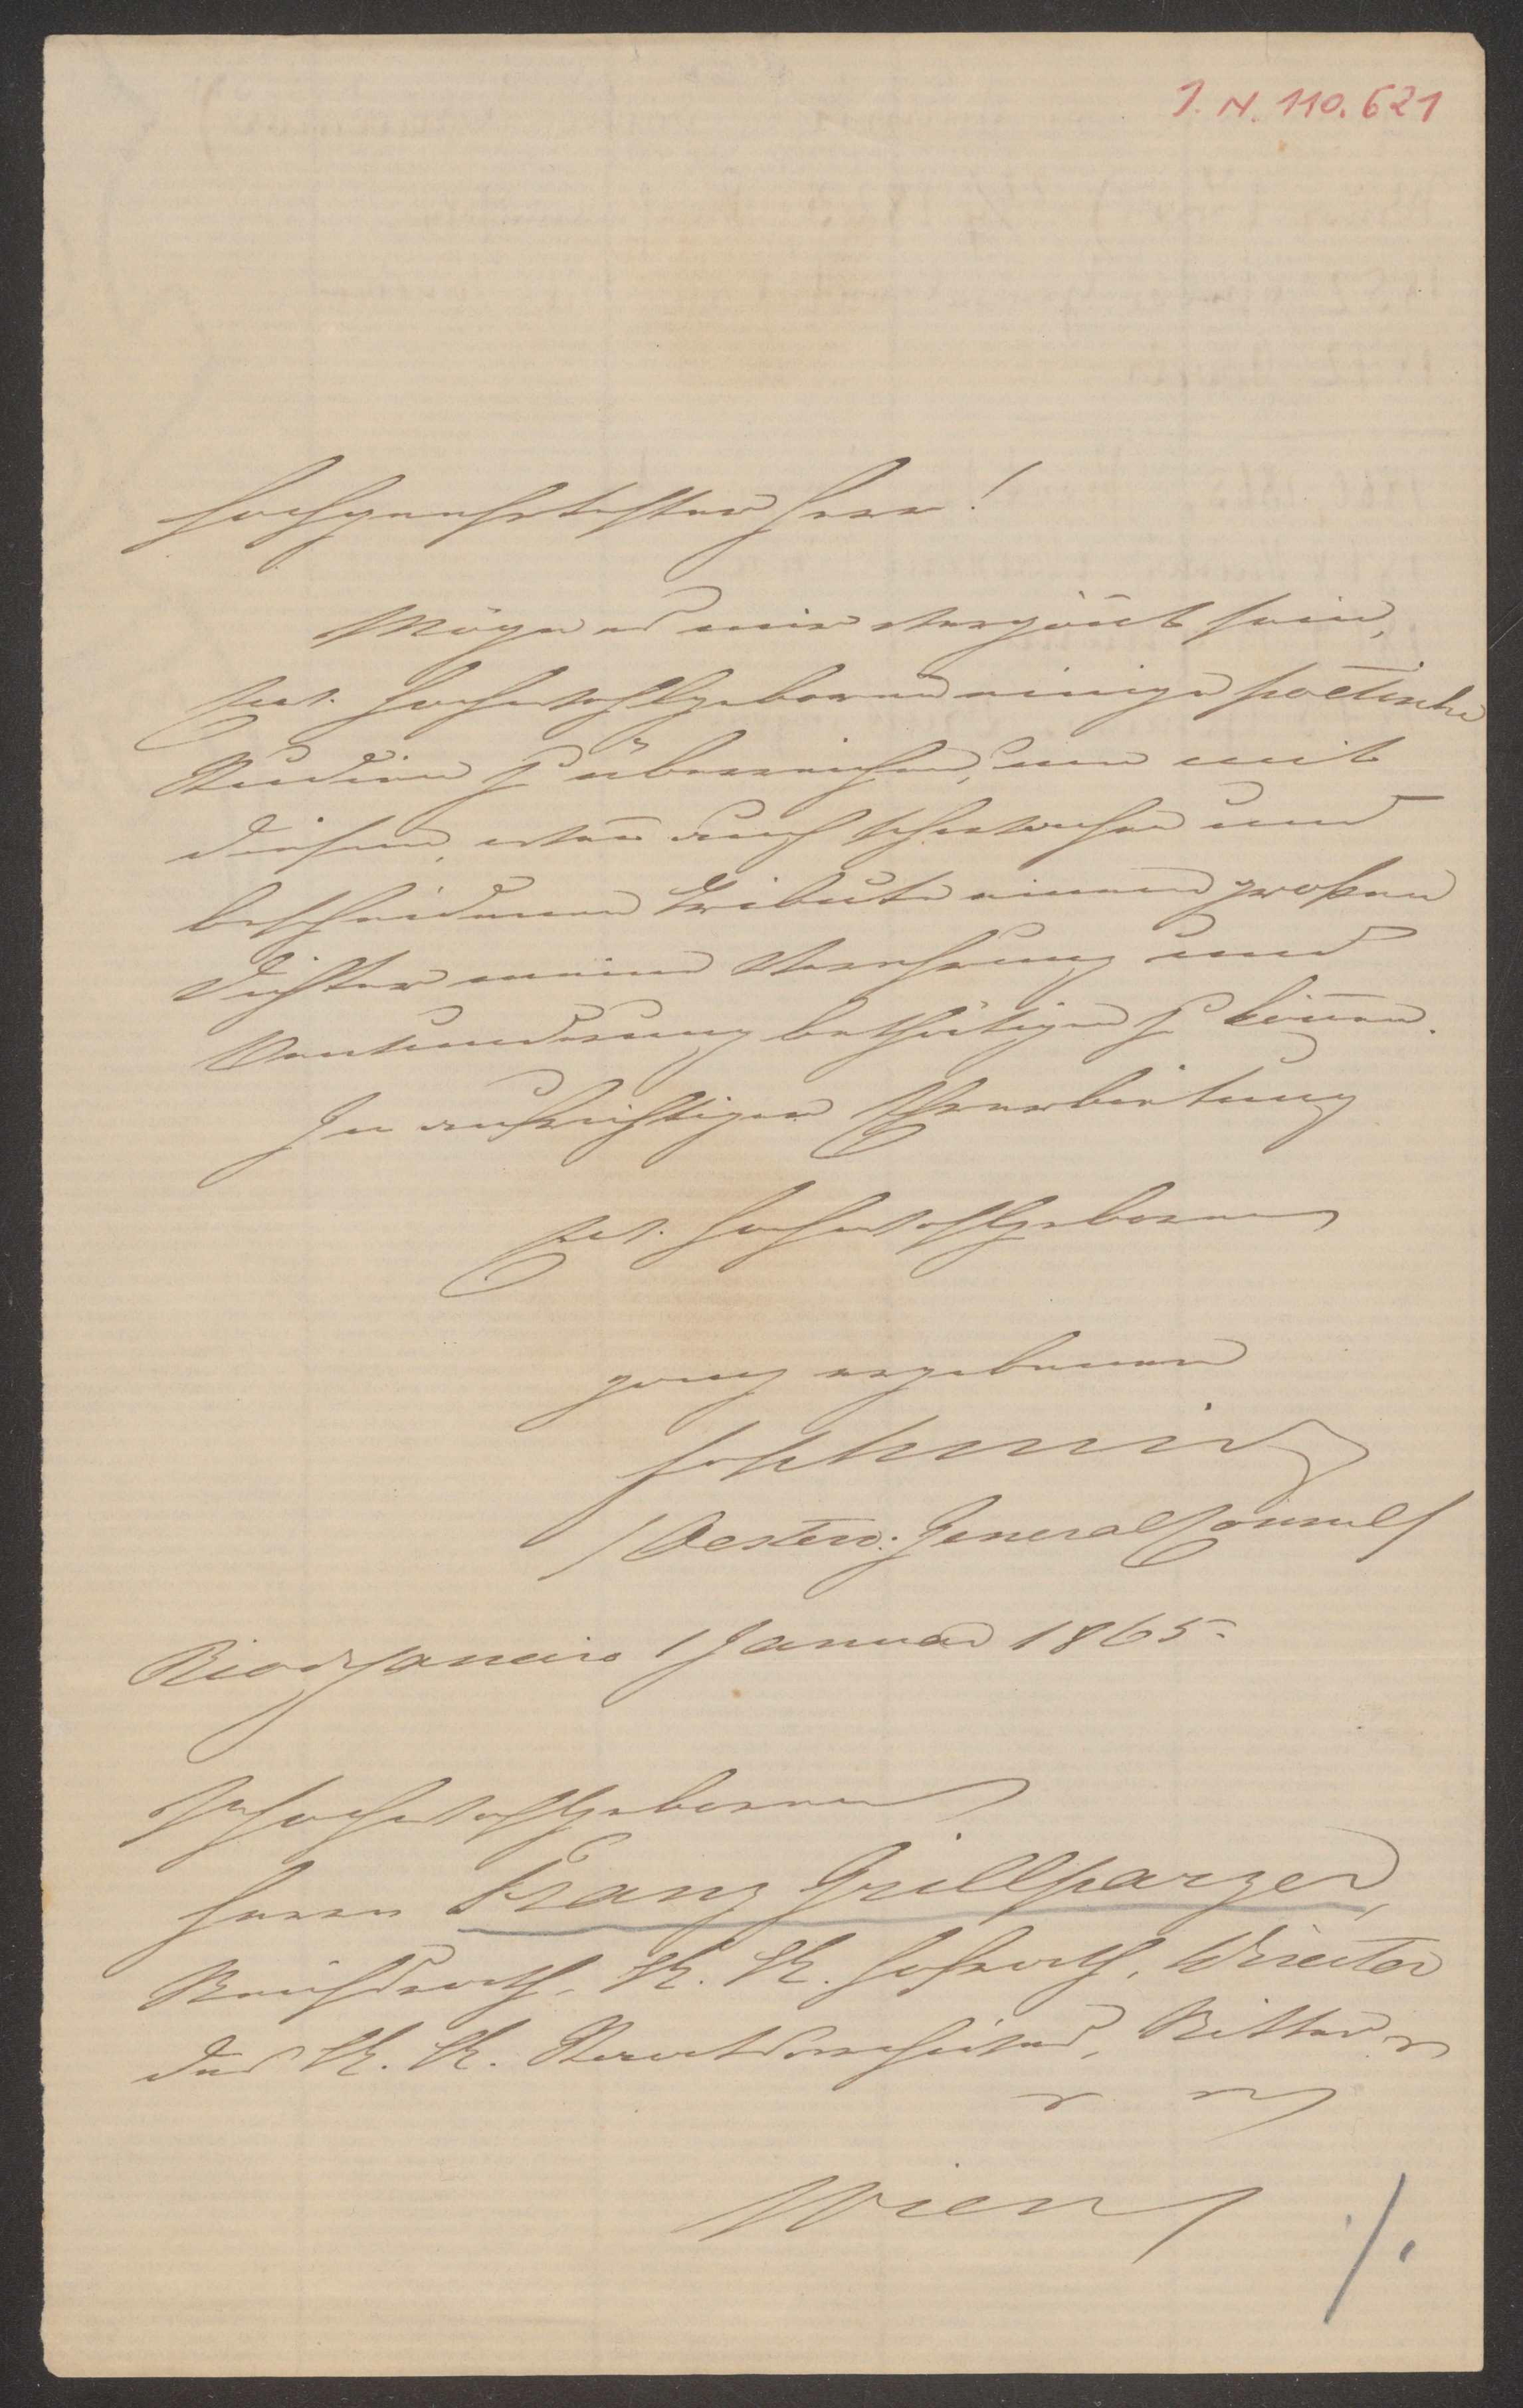 I. N. 110.621
Hochgeehrtester Herr!
Möge es mir vergönt sein,
Eur. Hochwohlgeboren einige poetische
Studien zu überreichen, um mit
diesem, wenn auch schwachen und
bescheidenen Tribute einem großen
Dichter meine Verehrung und
Bewunderung bethätigen zu können.
In aufrichtiger Ehrerbietung
Eur. Hochwohlgeboren
ganz ergebener
Schmid
Oesterr. Generalconsul
Rio de Janeiro 1 Januar 1865.
Sr Hochwohlgeboren
Herrn Franz Grillparzer,
Reichsrath, K. K. Hofrath, Director
des K. K. Staatsarchives, Ritter
Wien